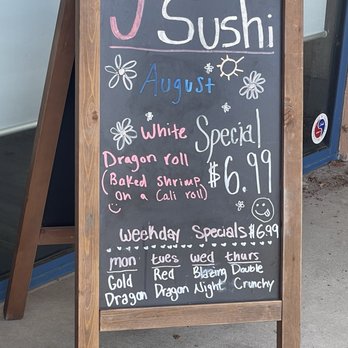 J Sushi
August
White Special
Dragon roll $6.99
(Baked shrimp
on a Cali roll)
Weekday Specials $6.99
mon tues wed thurs
Gold Red Blazing Double
Dragon Dragon Night Crunchy